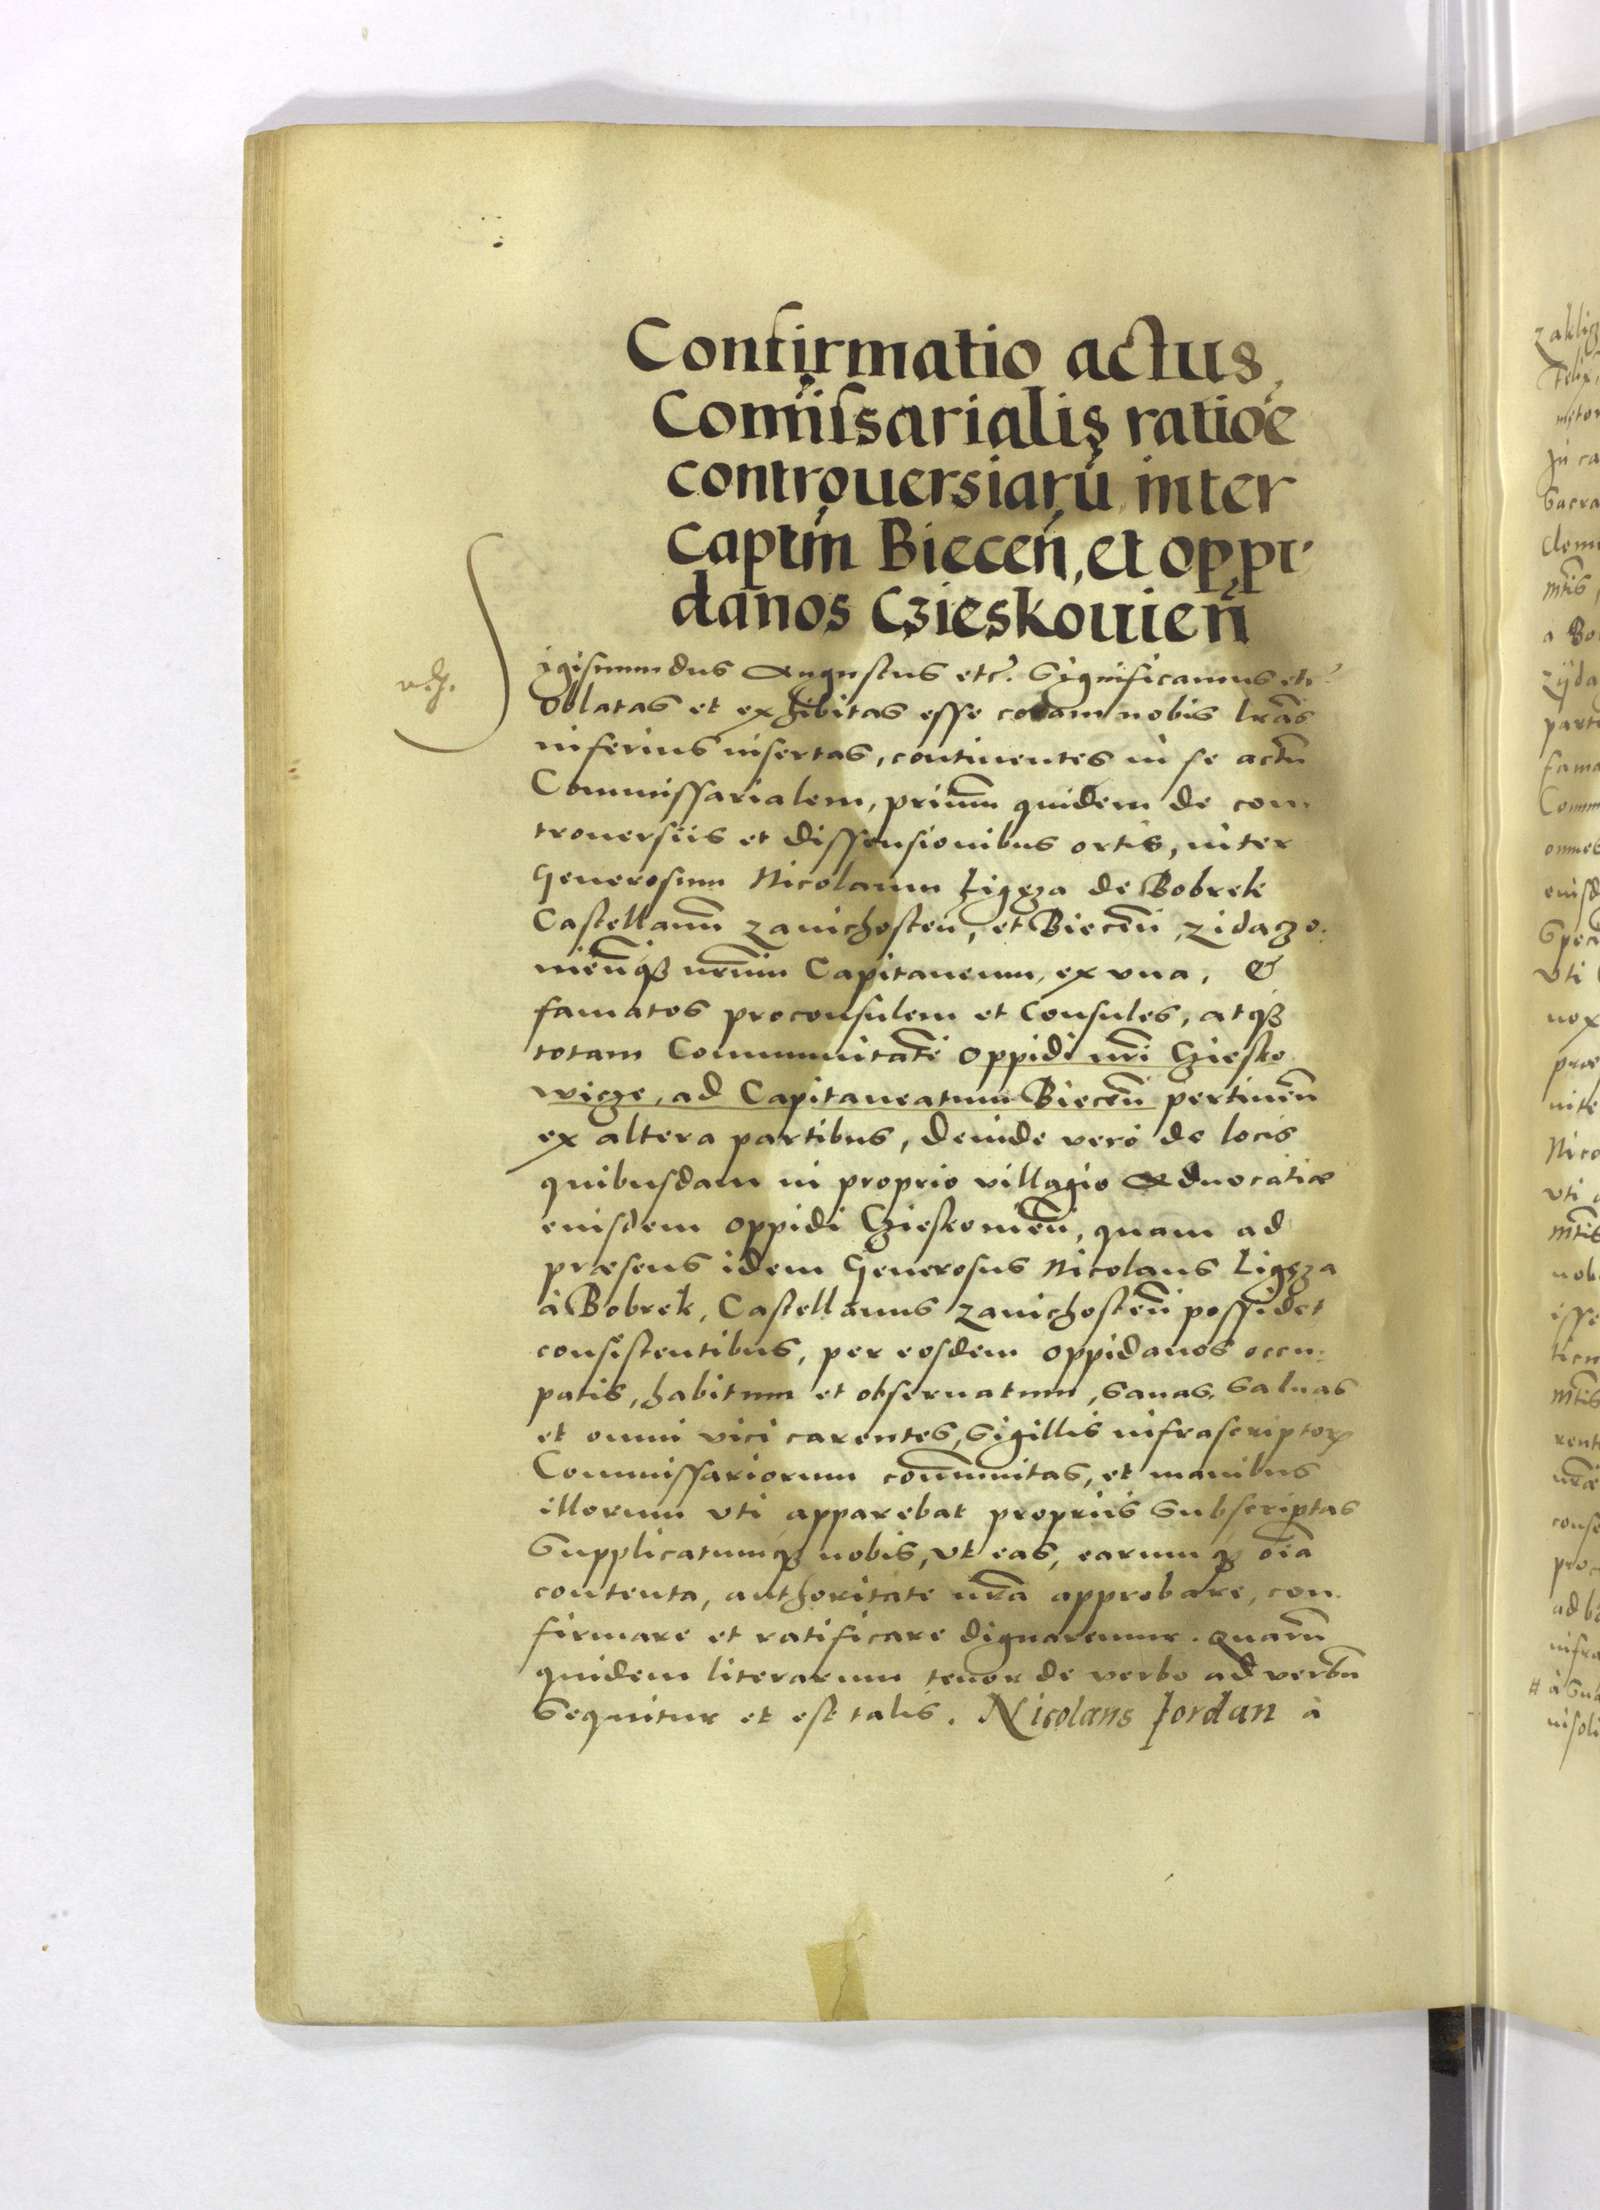 Confirmatio actus
Comissarialis ratioe
controuersiarū inter
captm̄ Biecen̄, et oppi-
danos Czieskouien̄
Sigismundus Augustus etc. Significamus etc
Oblatas et exhibitas esse coram nobis lrās
inferius insertas, continentes in se actū
Commissarialem, primum quidem de con-
trouersiis et dissensionibus ortis, inter
Generosum Nicolaum Ligęza de Bobrek
Castellanū Zavichosten, et Biecen̄ Zidaczo-
vien̄qȝ nrūm Capitaneum, ex vna, &
famatos proconsulem et Consules, atqȝ
totam Communitatē oppidi nrī Czieżko
wicze, ad Capitaneatum Biecen̄ pertinen̄
ex altera partibus, deinde verò de locis
quibusdam in proprio villagio Aduocatiæ
eiusdem oppidi Czieskowien̄, quam ad
præsens idem Generosus Nicolaus Ligęza
à Bobrek, Castellanus Zavichosten̄ possidet
consistentibus, per eosdem oppidanos occu-
patis, habitum et obseruatum, sanas, saluas
et omni vici carentes, Sigillis infrascriptorꝝ
Commissariorum communitas, et manibus
illorum vti apparebat propriis subscriptas
Supplicatumqȝ nobis, vt eas, earumqȝ oīa
contenta, authoritate nrā approbare, con-
firmare et ratificare dignaremur. Quarū
quidem literarum tenor de verbo ad verbū
Sequitur et est talis. Nicolaus Jordan à